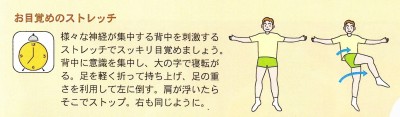 お目覚めのストレッチ
様々な神経が集中する背中を刺激する
ストレッチでスッキリ目覚めましょう。
背中に意識を集中し、大の字で寝転が
る。足を軽く折って持ち上げ、足の重
さを利用して左に倒す。肩が浮いたら
そこでストップ。右も同じように。